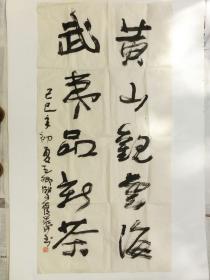 黄山観雲海
武夷品新茶
己巳年初夏